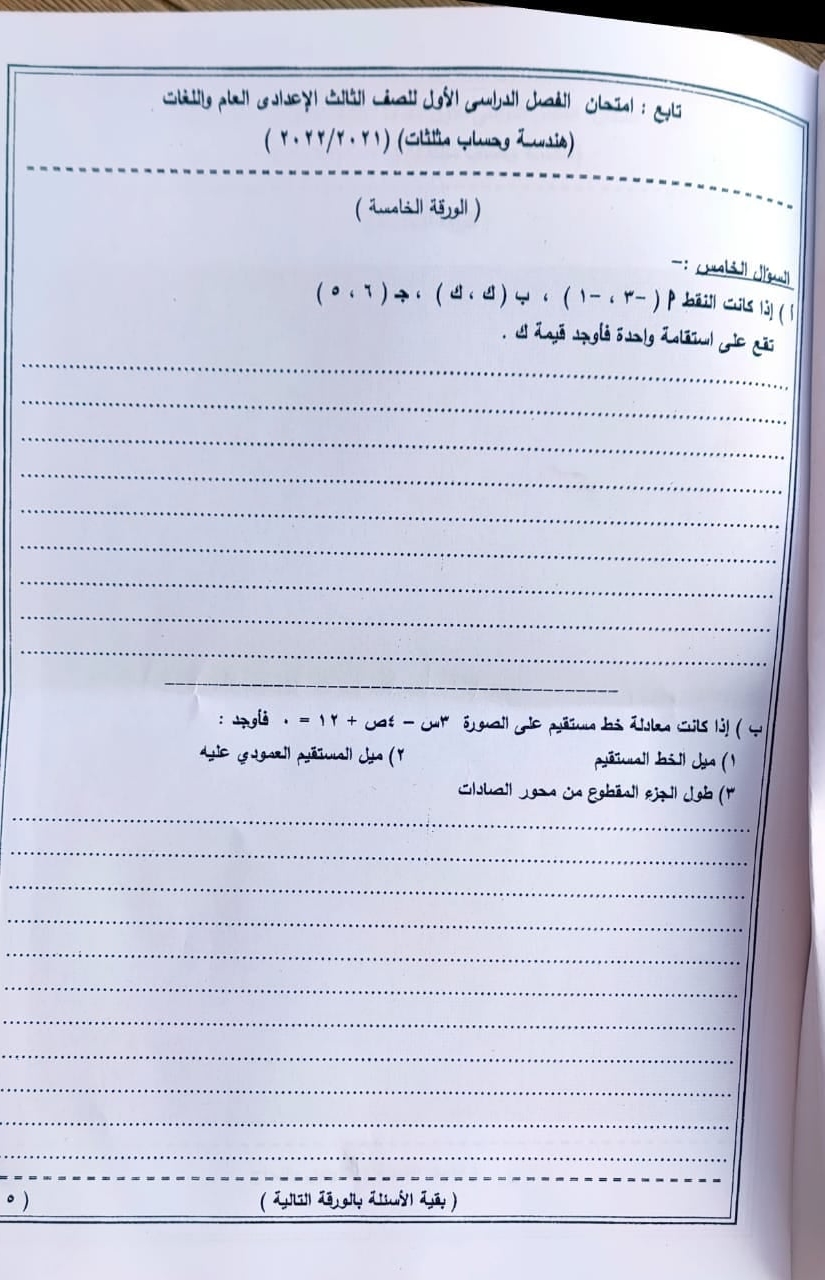 تابع : امتحان الفصل الدراسى الأول للصف الثالث الإعدادى العام واللغات
(هندسة وحساب مثلثات) (٢٠٢٢/٢٠٢١ )
( الورقة الخامسة )
السؤال الخامس :-
أ ) إذا كانت النقط م ( -٣ ، -١ ) ، ب ( ك ، ك ) ، جـ ( ٦ ، ٥ )
تقع على استقامة واحدة فأوجد قيمة ك .
ب ) إذا كانت معادلة خط مستقيم على الصورة ٣س - ٤ص + ١٢ = ٠ فأوجد :
١) ميل الخط المستقيم ٢) ميل المستقيم العمودي عليه
٣) طول الجزء المقطوع من محور الصادات
( بقية الأسئلة بالورقة التالية ) ( ٥